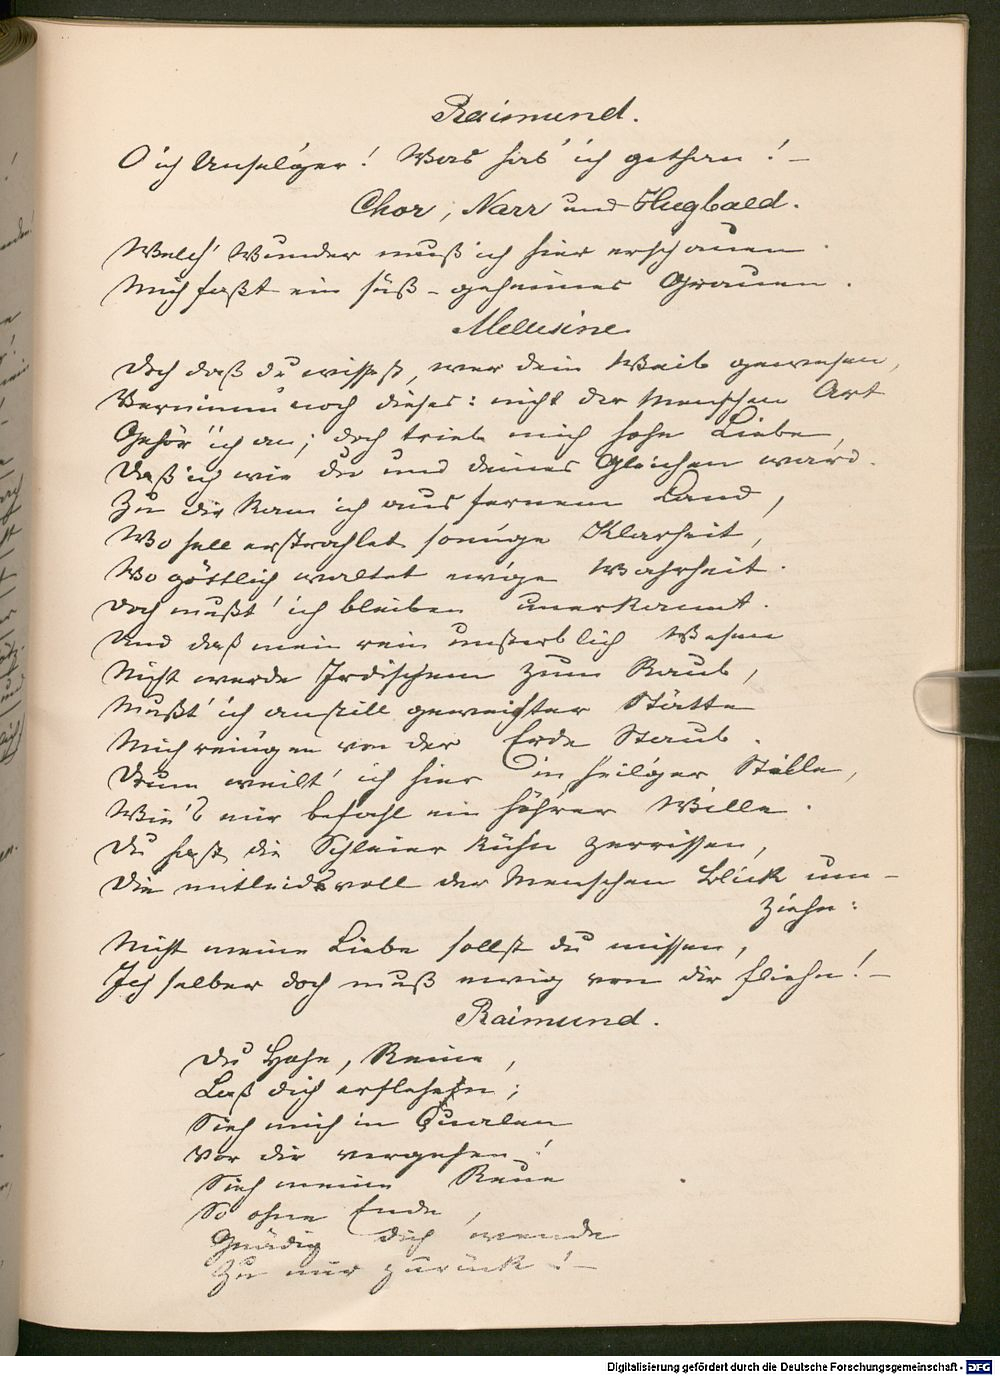 Raimund.
O ich Unsel'ger! Was hab' ich gethan! –
Chor, Narr und Hugbald.
Welch' Wunder muß ich hier erschauen.
Mich faßt ein süß-geheimes Grauen.
Melusine
Doch daß du wissest, wer dein Weib gewesen,
Vernimm noch dieses: nicht der Menschen Art
Gehör' ich an; doch trieb mich hohe Liebe,
Daß ich wie du und deines Gleichen ward.
Zu dir kam ich aus fernem Land,
Wo hell erstrahlet sonn'ge Klarheit,
Wo göttlich waltet ew'ge Wahrheit.
Doch mußt' ich bleiben unerkannt.
Und daß mein rein unsterblich Wesen
Nicht werde Irdischem zum Raub,
Mußt' ich an still geweihter Stätte
Mich rein'gen von der Erde Staub.
Drum weilt' ich hier in heil'ger Stille,
Wie's mir befahl ein höh'rer Wille.
Du hast die Schleier kühn zerrissen,
Die mitleidsvoll der Menschen Blick um-
ziehn:
Nicht meine Liebe sollst du missen,
Ich selber doch muß ewig von dir fliehn! –
Raimund.
Du Hohe, Reine,
Laß dich erflehen;
Sieh mich in Qualen
Vor dir vergehen!
Sieh meine Reue
So ohne Ende,
Gnädig dich wende
Zu mir zurück! –
Digitalisierung gefördert durch die Deutsche Forschungsgemeinschaft - DFG